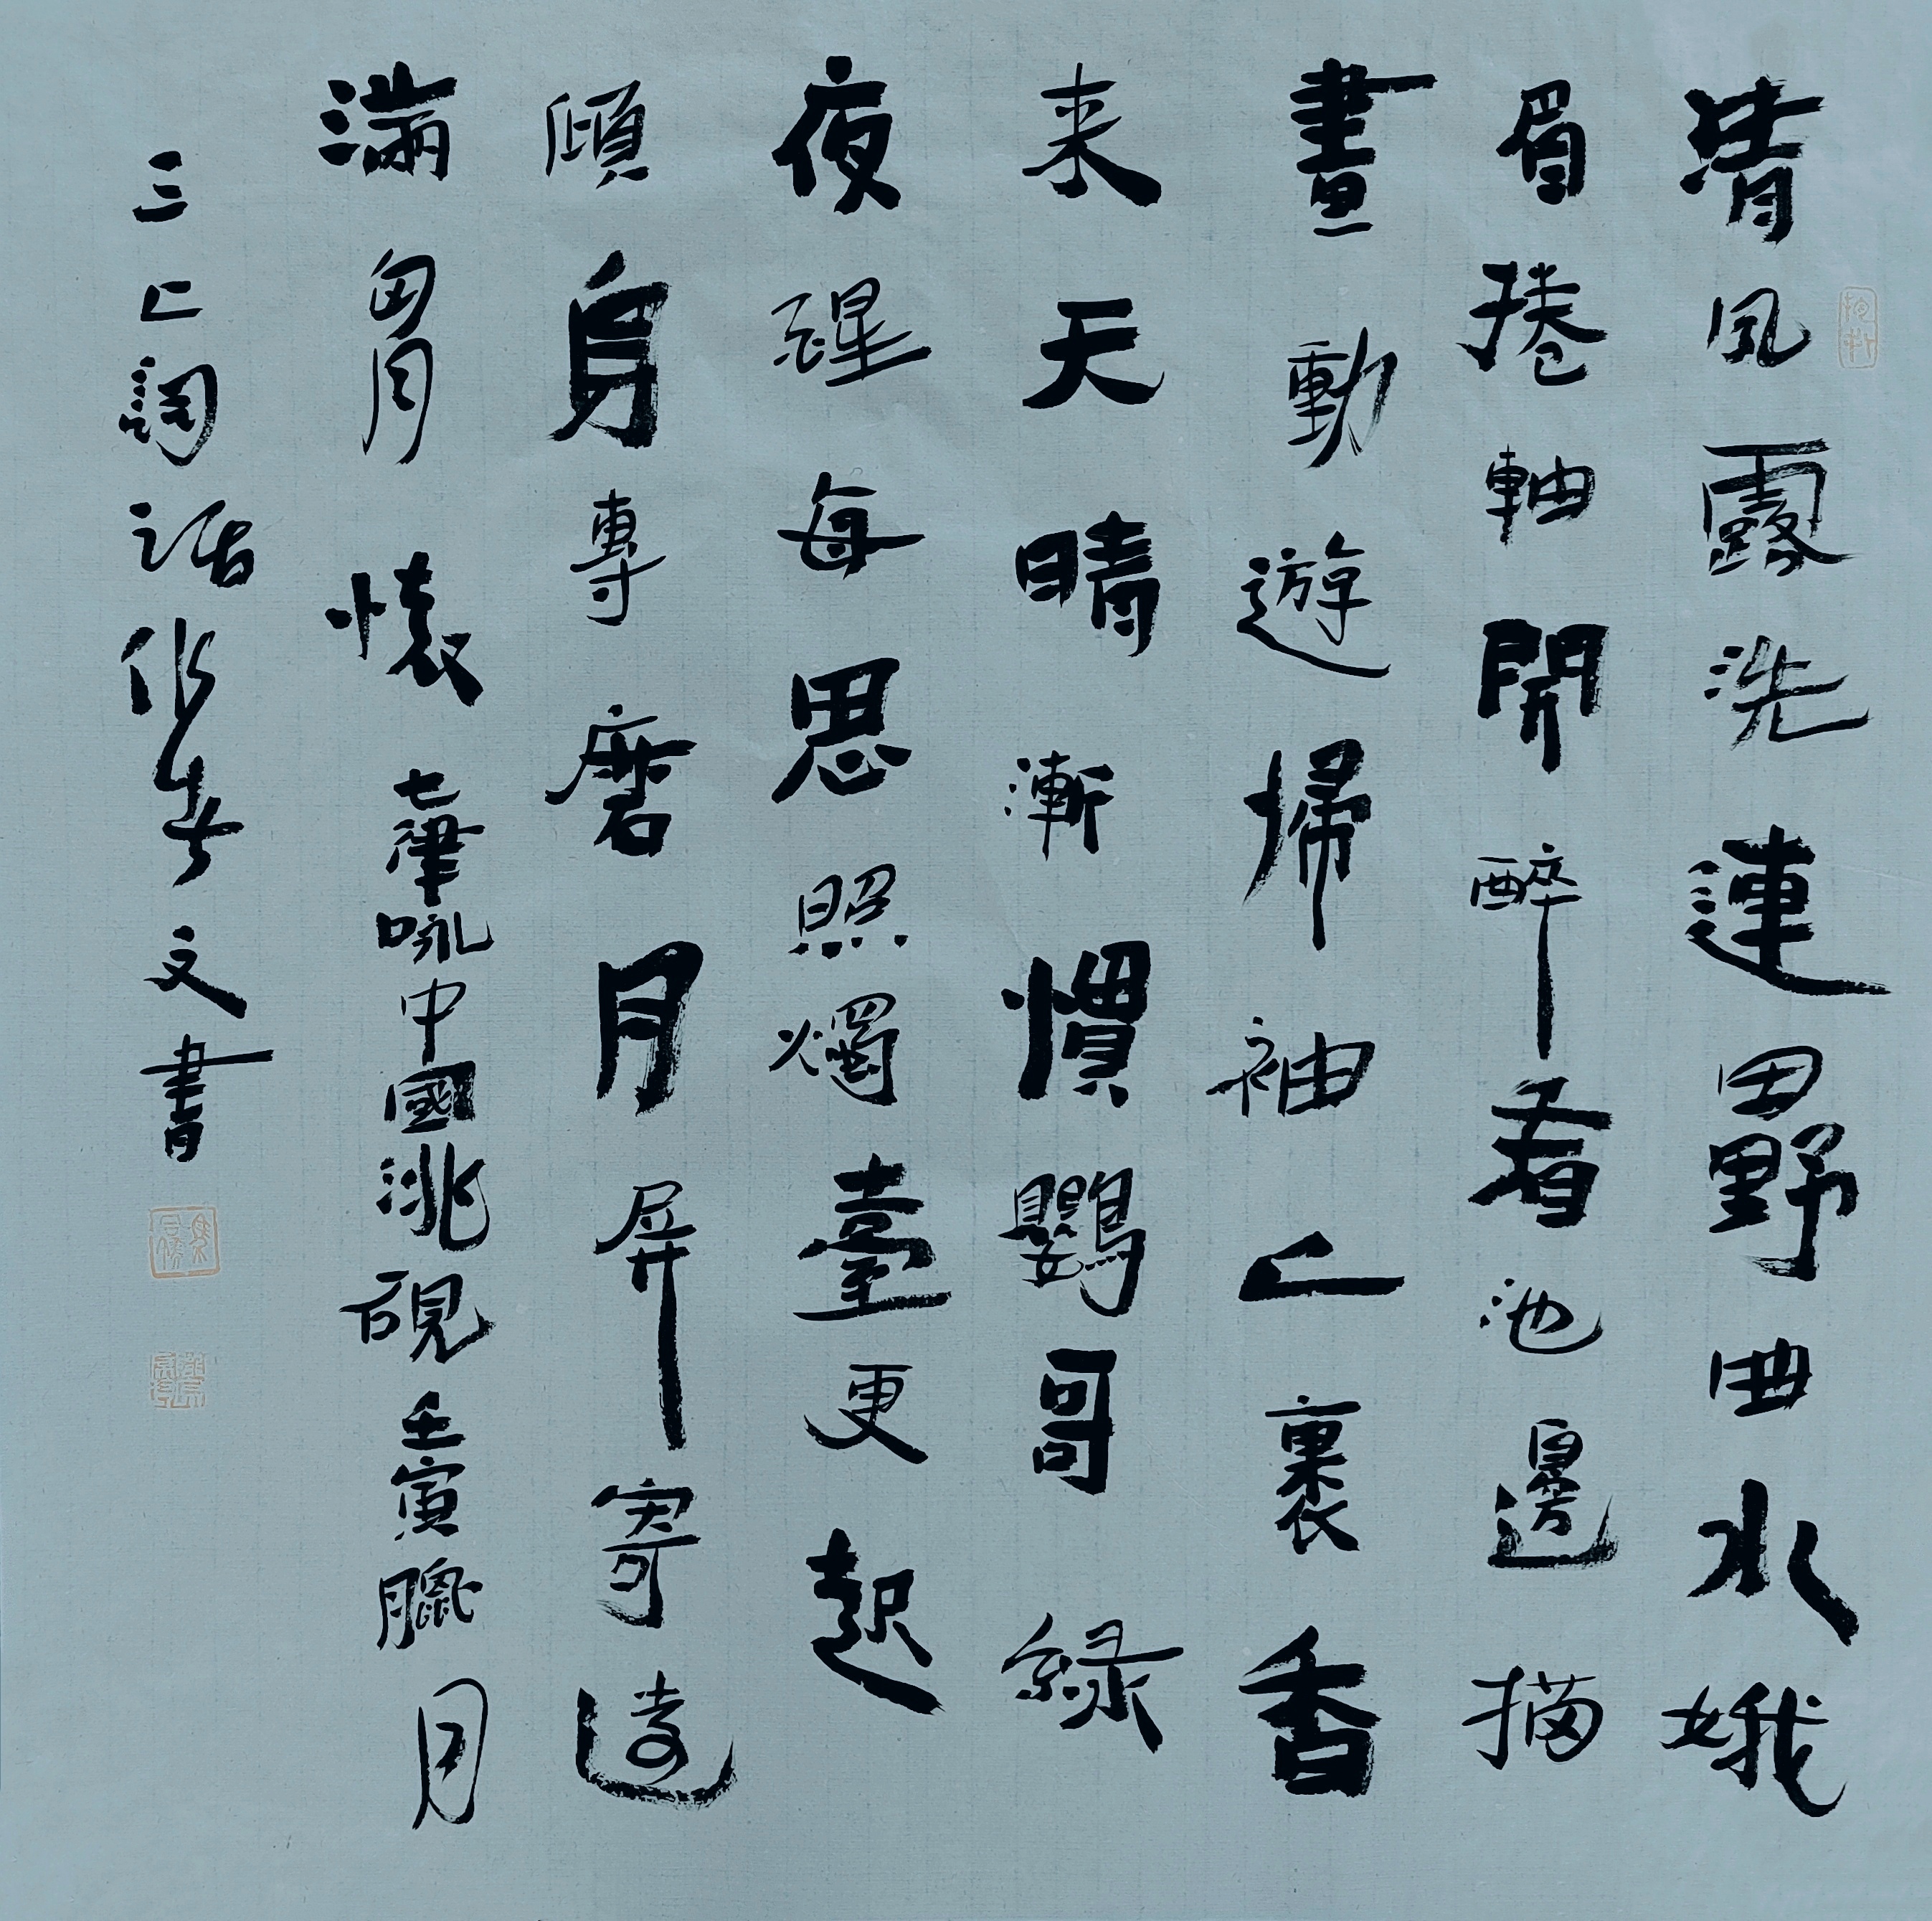 清風露洗連田野曲水娥
眉捲軸開醉看池邊描
畫動遊歸袖上裏香
来天晴漸慣鸚哥緑
夜醒每思照燭臺更起
傾身專磨月屏寄遠
滿匈月懷七律咏中國洮硯壬寅臘月
三上詞話
文書